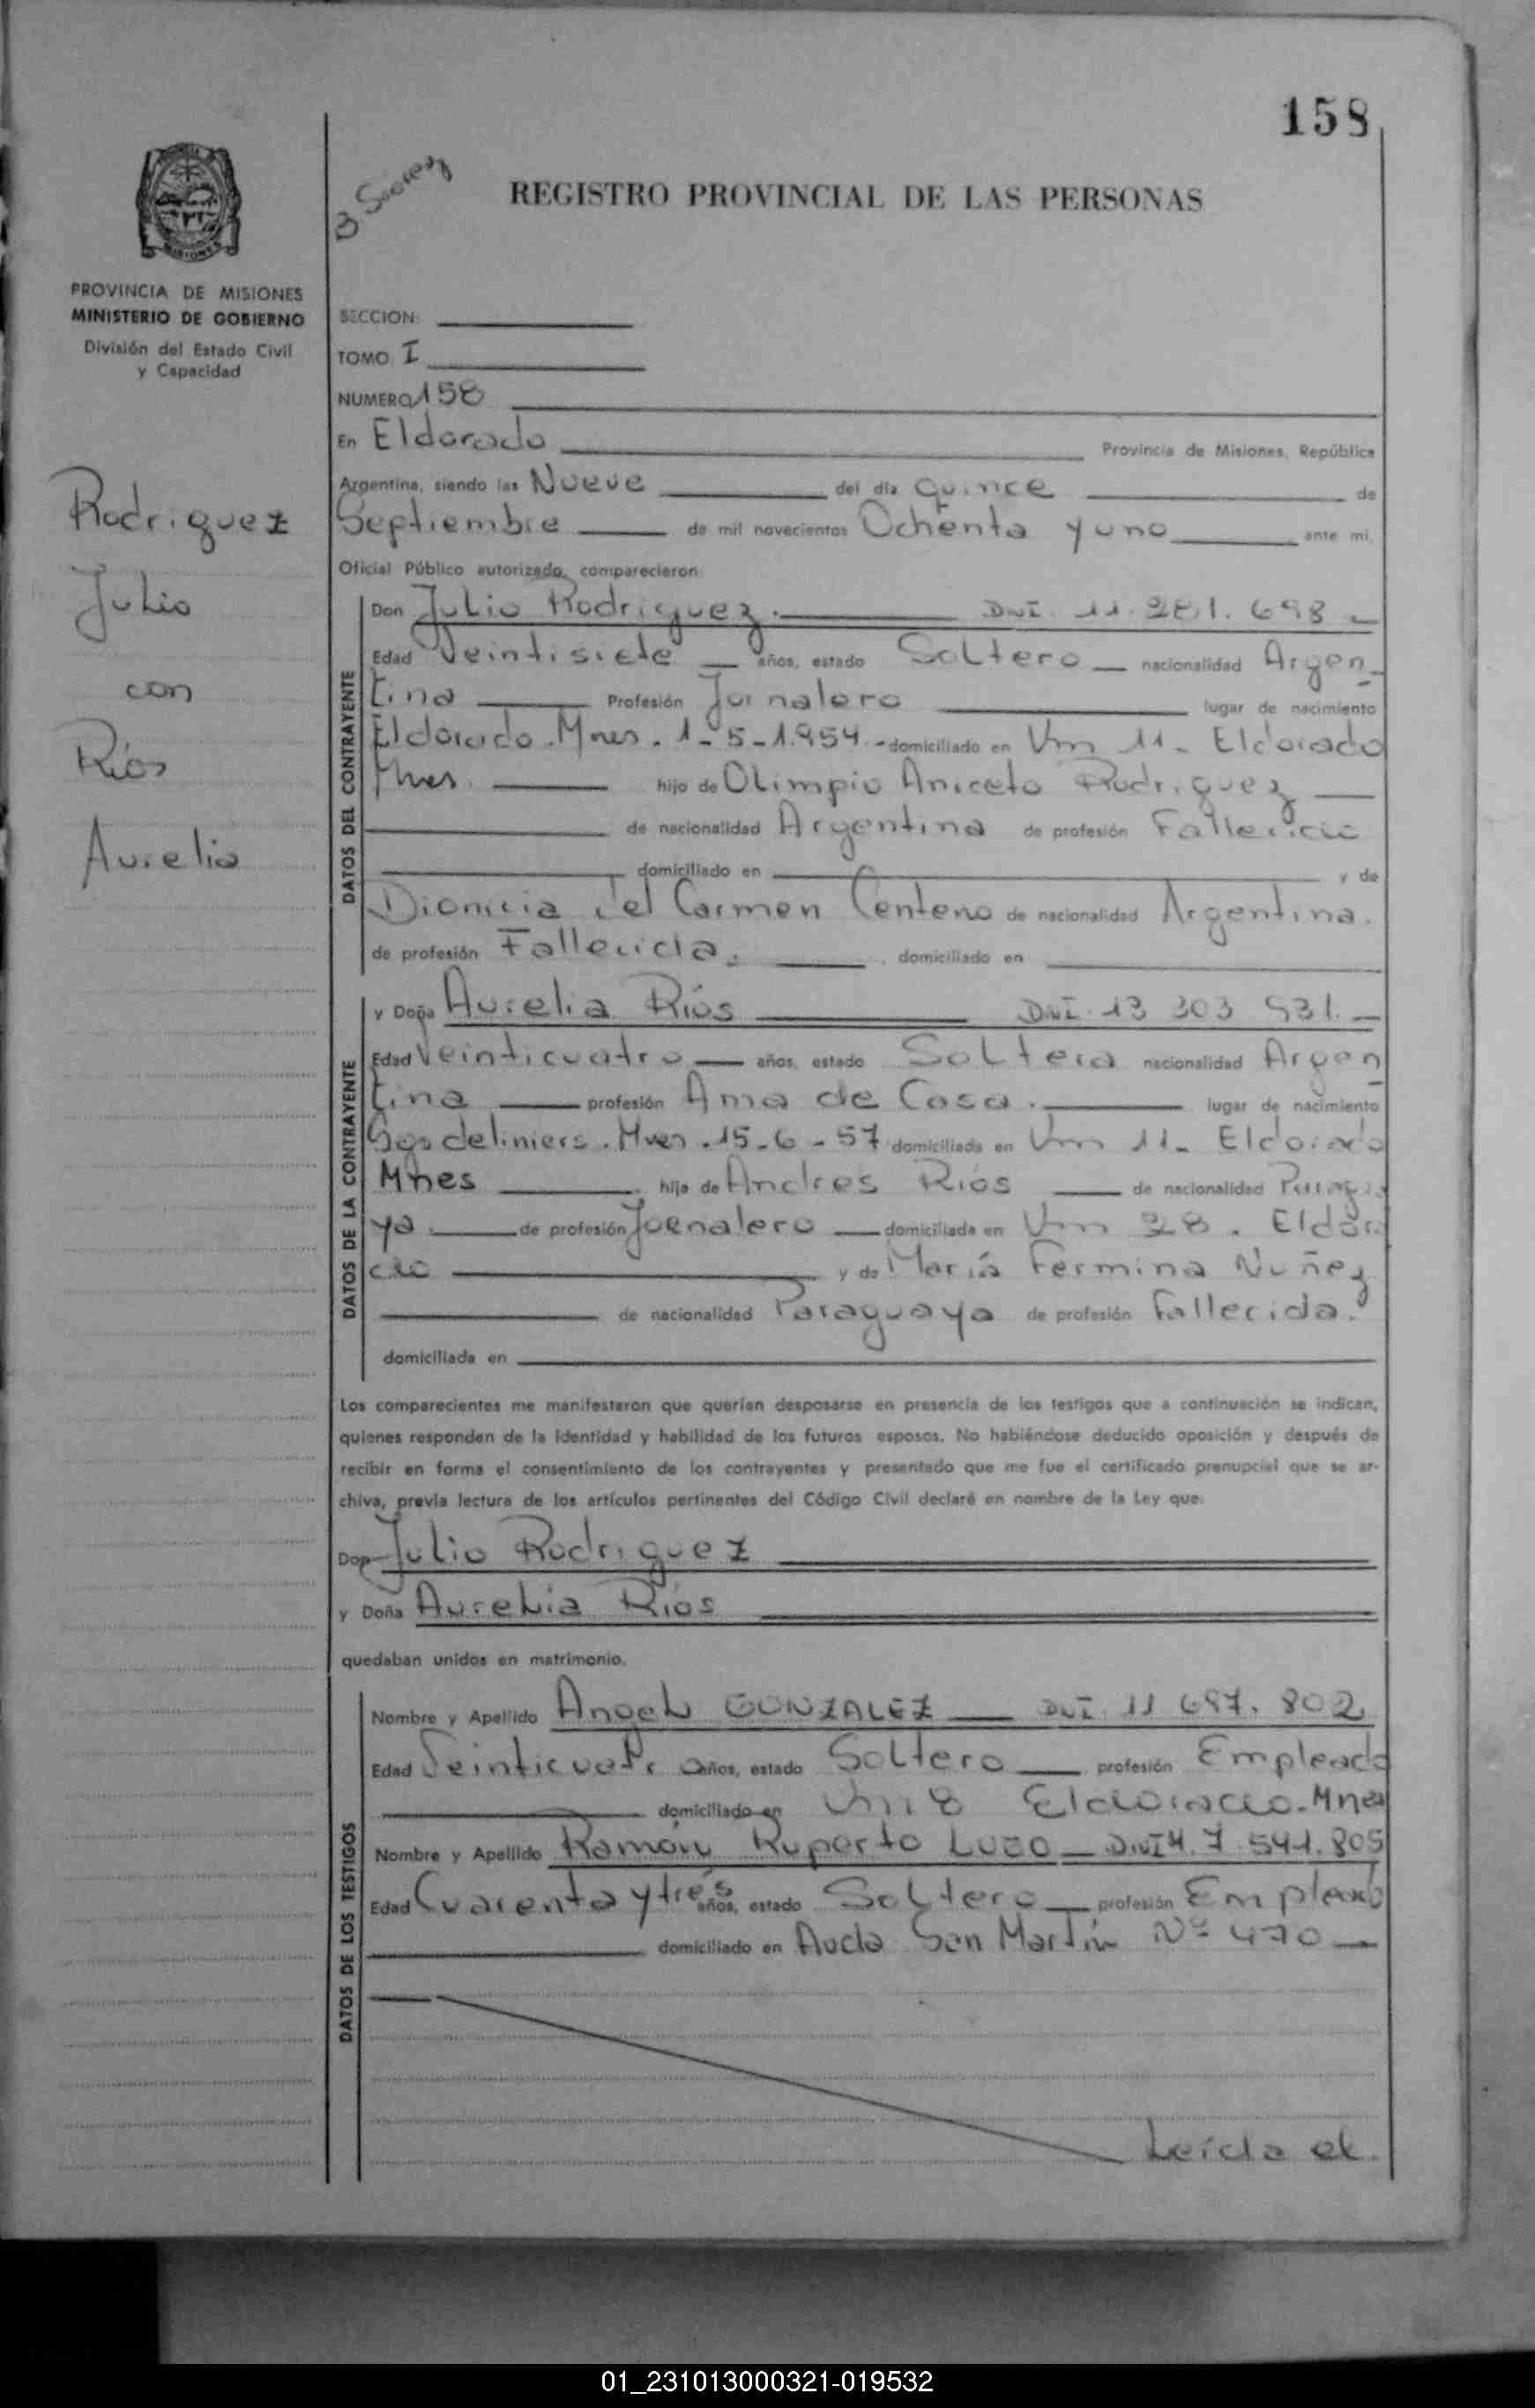 158
B Suarez
REGISTRO PROVINCIAL DE LAS PERSONAS
MISIONES
PROVINCIA DE MISIONES
MINISTERIO DE GOBIERNO
División del Estado Civil
y Capacidad
Rodriguez
Julio
con
Ríos
Aurelia
SECCION:
TOMO I
NUMERO 158
En Eldorado Provincia de Misiones, República
Argentina, siendo las Nueve del día quince de
Septiembre de mil novecientos Ochenta y uno ante mi,
Oficial Público autorizado, comparecieron:
DATOS DEL CONTRAYENTE
Don Julio Rodriguez. DNI. 11.281.698
Edad Veintisiete años, estado Soltero nacionalidad Argen
tina Profesión Jornalero lugar de nacimiento
Eldorado. Mnes. 1-5-1.954.- domiciliado en Km 11- Eldorado
Mnes. hijo de Olimpio Aniceto Rodriguez
de nacionalidad Argentina de profesión Fallecido
domiciliado en y de
Dionicia del Carmen Centeno de nacionalidad Argentina.
de profesión Fallecida. domiciliado en
DATOS DE LA CONTRAYENTE
y Doña Aurelia Ríos DNI. 13 303 531.
Edad Veinticuatro años, estado Soltera nacionalidad Argen
tina profesión Ama de Casa. lugar de nacimiento
Mnes. 15-6-57 domiciliada en Km 11- Eldorado
Mnes hija de Andres Ríos de nacionalidad Paragua
ya de profesión Jornalero domiciliado en Km 28. Eldora
do y de María Fermina Nuñez
de nacionalidad Paraguaya de profesión Fallecida.
domiciliada en
Los comparecientes me manifestaron que querían desposarse en presencia de los testigos que a continuación se indican,
quienes responden de la identidad y habilidad de los futuros esposos. No habiéndose deducido oposición y después de
recibir en forma el consentimiento de los contrayentes y presentado que me fue el certificado prenupcial que se ar-
chiva, previa lectura de los artículos pertinentes del Código Civil declaré en nombre de la Ley que:
Don Julio Rodriguez
y Doña Aurelia Ríos
quedaban unidos en matrimonio.
DATOS DE LOS TESTIGOS
Nombre y Apellido Angel GONZALEZ DNI. 11 697. 802
Edad Veinticuatro años, estado Soltero profesión Empleado
domiciliado en Km 8 Eldorado. Mnes
Nombre y Apellido Ramón Ruperto LUGO DNI M. 7.541.805
Edad Cuarenta y tres años, estado Soltero profesión Empleado
domiciliado en Avda San Martín Nº 470
Leída el
01_231013000321-019532